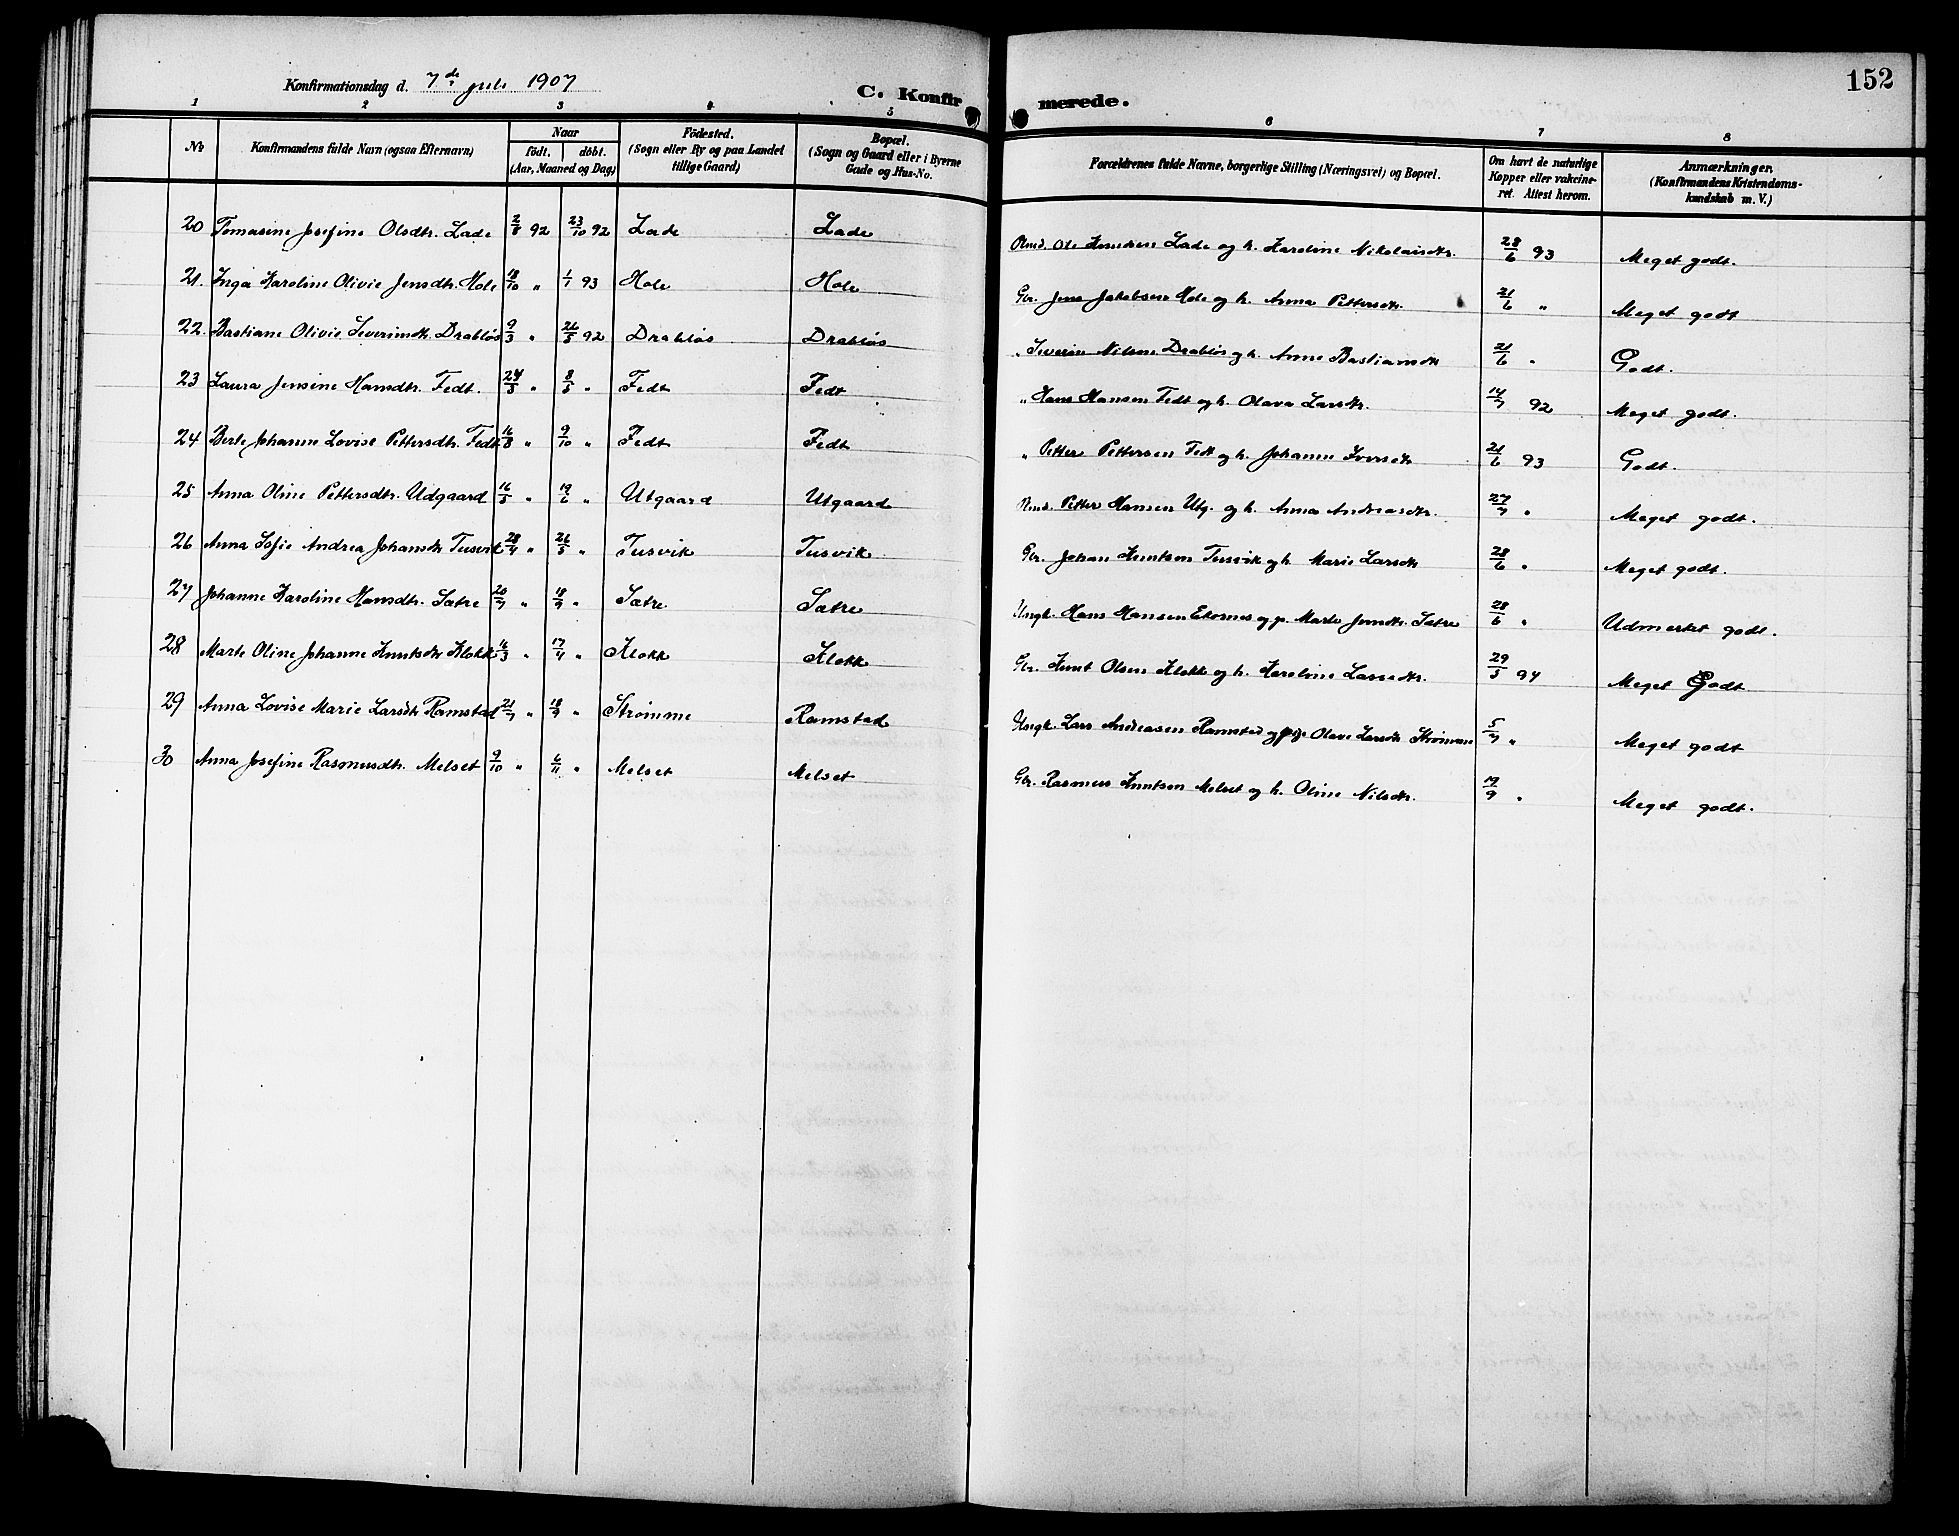 152
Konfirmationsdag d. 7de juli 1907
C. Konfirmerede.
1 2 3 4 5 6 7 8
No Konfirmandens fulde Navn (ogsaa Efternavn) Naar født. døbt. (Aar, Maaned og Dag) Födested. (Sogn eller By og paa Landet tillige Gaard) Bopæl. (Sogn og Gaard eller i Byerne Gade og Hus-No. Forældrenes fulde Navne, borgerlige Stilling (Næringsvei) og Bopæl. Om havt de naturlige Kopper eller vakcineret. Attest herom. Anmærkninger. (Konfirmandens Kristendomskundskab m. V.)
20 Tomasine Josefine Olsdtr. Lade 2/8 92 23/10 92 Lade Lade Ole Knudsen Lade og h. Karoline Nikolaisdtr. 28/6 93 Meget godt.
21. Inga Karoline Olivie Jensdtr. Hole 18/10 " 1/1 93 Hole Hole Gbr. Jens Jakobsen Hole og h. Anna Pettersdtr. 21/6 " Meget godt
22. Bastiane Olivie Severinsdtr. Drabløs 9/3 " 26/5 92 Drabløs Drabløs " Severin Nilsen Drabløs og h. Anne Bastiansdtr 21/6 " Godt.
23 Laura Jensine Hansdtr. Fedt. 24/3 " 8/5 " Fedt Fedt " Hans Hansen Fedt og h. Olava Larsdtr. 14/7 92 Meget godt.
24 Berte Johanne Lovise Pettersdtr. Fedt 16/8 " 9/10 " Fedt Fedt " Petter Pettersen Fedt og h. Johanne Iversdtr 21/6 93 Godt.
25 Anna Oline Pettersdtr. Udgaard 16/5 " 19/6 " Utgaard Utgaard Petter Hansen Utg. og h. Anna Andreasdtr. 27/7 " Meget godt.
26 Anna Sofie Andrea Johansdtr Tusvik 28/4 " 26/5 " Tusvik Tusvik Gbr. Johan Knutsen Tusvik og h. Marie Larsdtr 28/6 " Meget godt.
27 Johanne Karoline Hansdtr. Sætre 20/7 " 18/9 " Sætre Sætre Ungk. Hans Hansen Ekornes og p. Marte Jensdtr. Sætre 28/6 " Udmerket godt.
28 Marte Oline Johanne Knutsdtr Klokk 16/3 " 17/4 " Klokk Klokk Gbr. Knut Olsen Klokk og h. Karoline Larsdtr. 29/5 94 Meget Godt
29 Anna Lovise Marie Larsdtr Ramstad 21/7 " 18/9 " Strømme Ramstad Ungk. Lars Andreasen Ramstad og pige Olave Larsdtr Strømme 5/7 " Meget godt
30 Anna Josefine Rasmusdtr. Melset 9/10 " 6/11 " Melset Melset Gbr. Rasmus Knutsen Melset og h. Oline Nilsdtr. 19/9 " Meget godt.